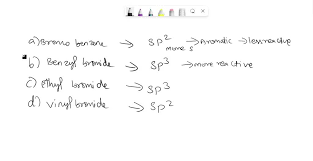 a) Bromo benzene → SP² → Aromatic → less reactive
more s
b) Benzyl bromide → SP³ → more reactive
c) Ethyl bromide → SP³
d) vinyl bromide → SP²